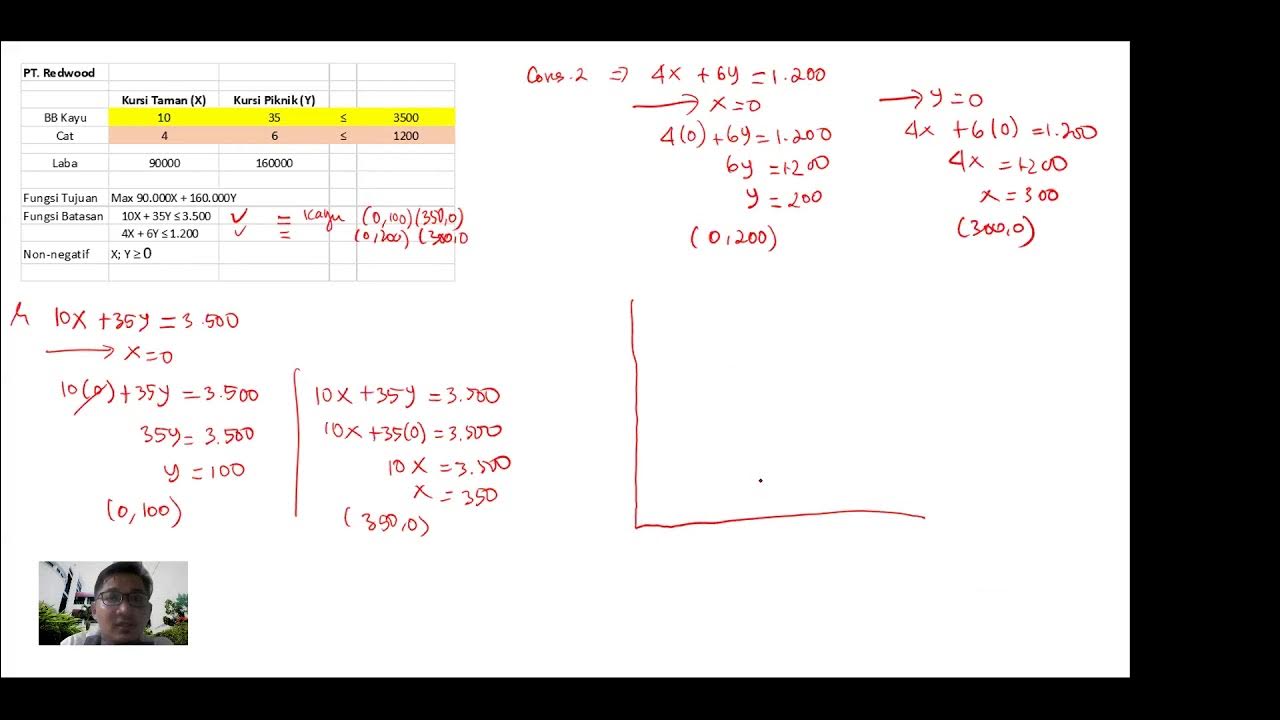 PT. Redwood
Kursi Taman (X) Kursi Piknik (Y)
BB Kayu 10 35 ≤ 3500
Cat 4 6 ≤ 1200
Laba 90000 160000
Fungsi Tujuan Max 90.000X + 160.000Y
Fungsi Batasan 10X + 35Y ≤ 3.500 ✓ = Kayu (0,100) (350,0)
4X + 6Y ≤ 1.200 ✓ = (0,200) (300,0
Non-negatif X; Y ≥ 0
Cons. 2 ⇒ 4X + 6Y = 1.200
→ X = 0
4(0) + 6Y = 1.200
6Y = 1200
Y = 200
(0,200)
→ Y = 0
4X + 6(0) = 1.200
4X = 1200
X = 300
(300,0)
10X + 35Y = 3.500
→ X = 0
10(0) + 35Y = 3.500
35Y = 3.500
Y = 100
(0,100)
10X + 35Y = 3.500
10X + 35(0) = 3.500
10X = 3.500
X = 350
(350,0)